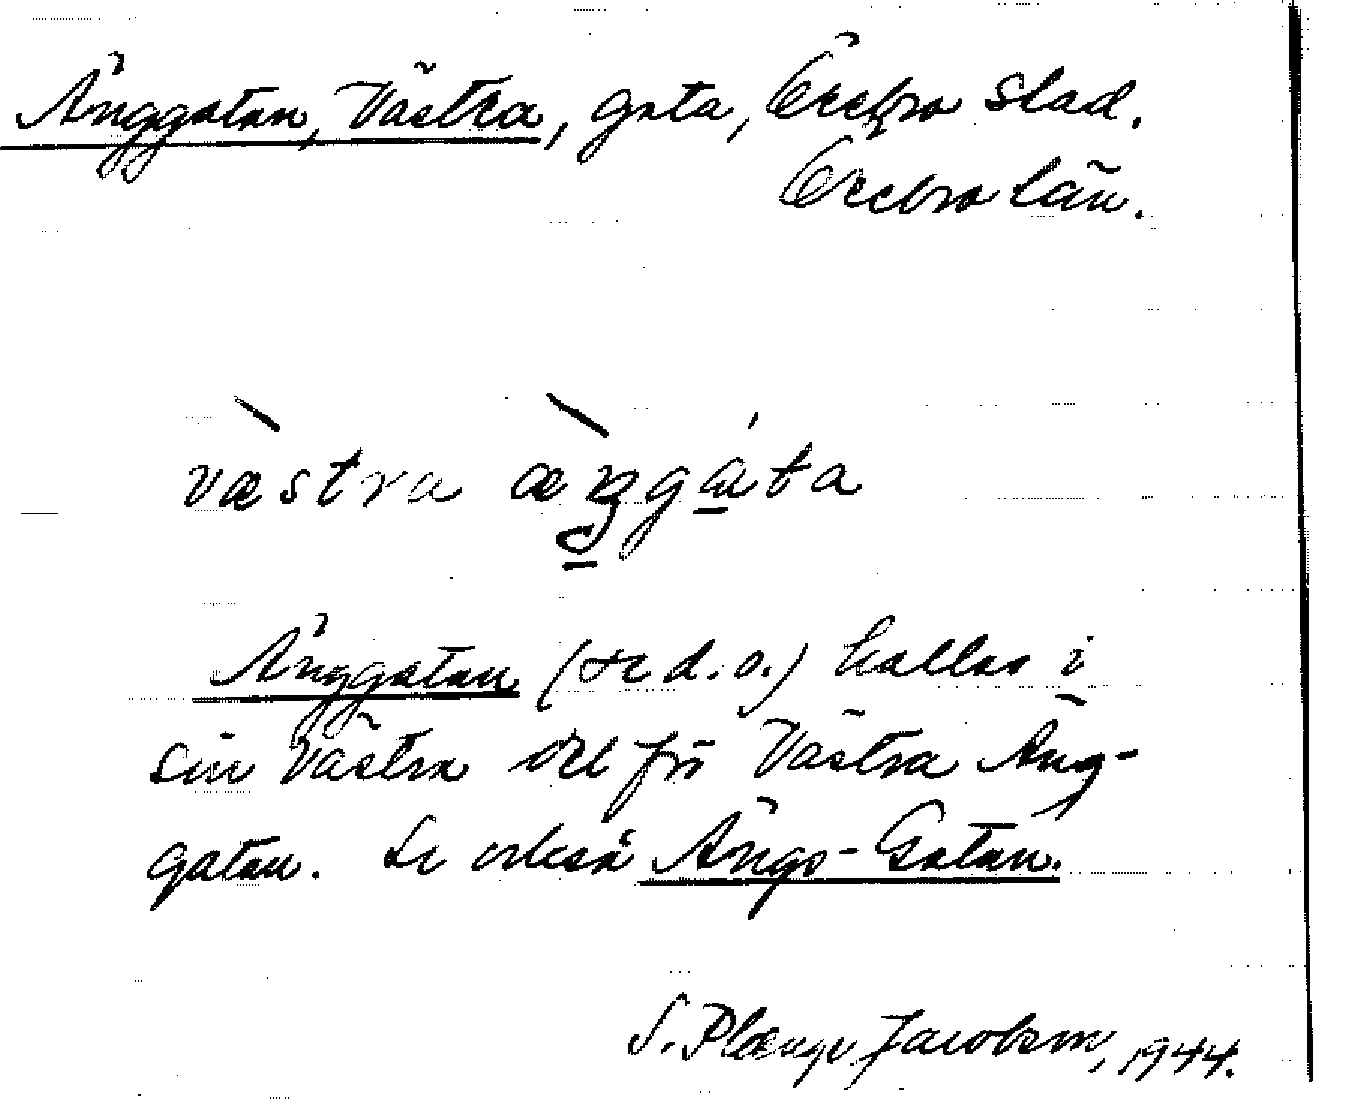 Änggatan, Västra, gata, Örebro stad.
Örebro län.
vӕstra ӕŋgáta
Änggatan (se d. o.) kallas i
sin västra del för Västra Äng-
gatan. Se också Ängs-Gatan.
S. Plænge Jacobson, 1944.